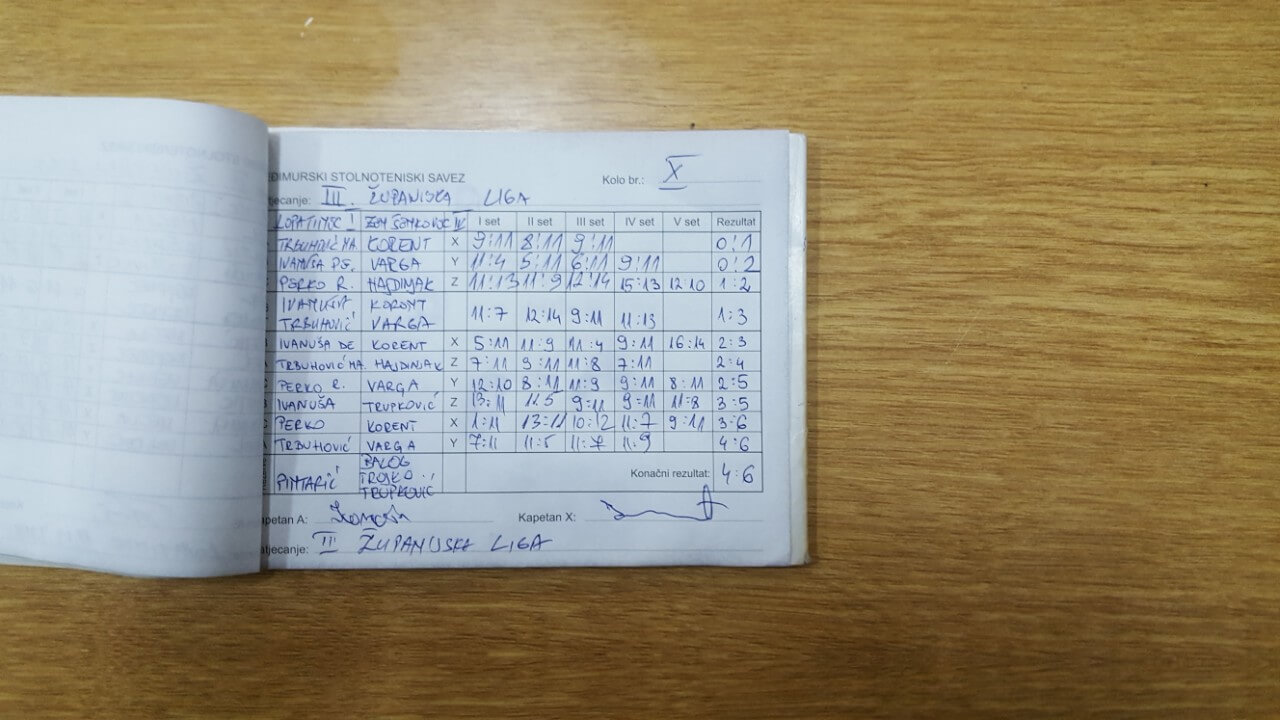 EĐIMURSKI STOLNOTENISKI SAVEZ
Kolo br.: X
jecanje: III. ŽUPANIJSKA LIGA
I set II set III set IV set V set Rezultat
TRBUHOVIĆ MA. KORENT X 9:11 8:11 9:11 0:1
IVANUŠA VARGA Y 11:4 5:11 6:11 9:11 0:2
PERKO R. HAJDINAK Z 11:13 11:9 12:14 15:13 12:10 1:2
KORENT
TRBUHOVIĆ VARGA 11:7 12:14 9:11 11:13 1:3
IVANUŠA DE KORENT X 5:11 11:9 11:4 9:11 16:14 2:3
TRBUHOVIĆ MA. HAJDINAK Z 7:11 9:11 11:8 7:11 2:4
PERKO R. VARGA Y 12:10 8:11 11:9 9:11 8:11 2:5
IVANUŠA TRUPKOVIĆ Z 13:11 11:5 9:11 9:11 11:8 3:5
PERKO KORENT X 1:11 13:11 10:12 11:7 9:11 3:6
TRBUHOVIĆ VARGA Y 7:11 11:5 11:7 11:9 4:6
BALOG
PINTARIĆ TROJKO Konačni rezultat: 4:6
TRUPKOVIĆ
petan A: Kapetan X:
tjecanje: III ŽUPANIJSKA LIGA